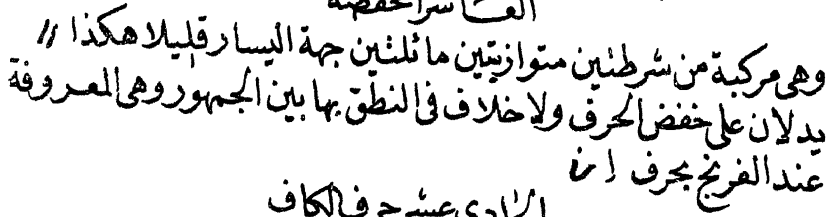 العاشر الخفضة
وهى مركبة من شرطتين متوازيتين مائلتين جهة اليسار قليلا هكذا //
يدلان على خفض الحرف ولا خلاف فى النطق بها بين الجمهور وهى المعروفة
عند الفرنج بحرف
الحادى عشر حرف الكاف